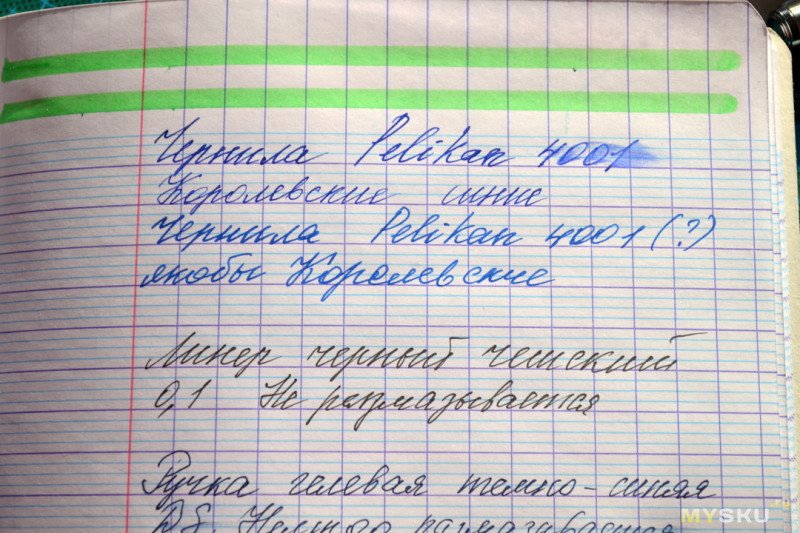 Чернила Pelikan 4001
Королевские синие
Чернила Pelikan 4001 (?)
якобы Королевские
Линер черный чешский
0,1 Не размазывается
Ручка гелевая темно-синяя
Немного размазывается
MYSKU.ru